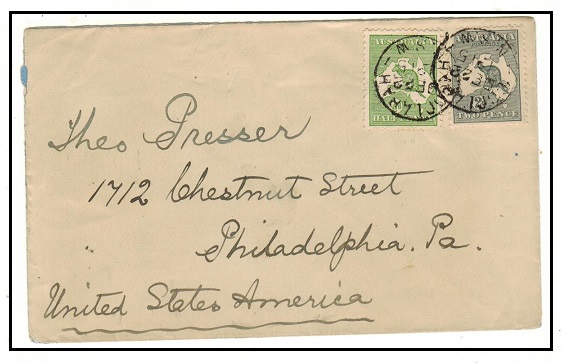 AUSTRALIA
HALF
AUSTRALIA
TWO PENCE
Theo Presser
1712 Chestnut Street
Philadelphia. Pa.
United States America